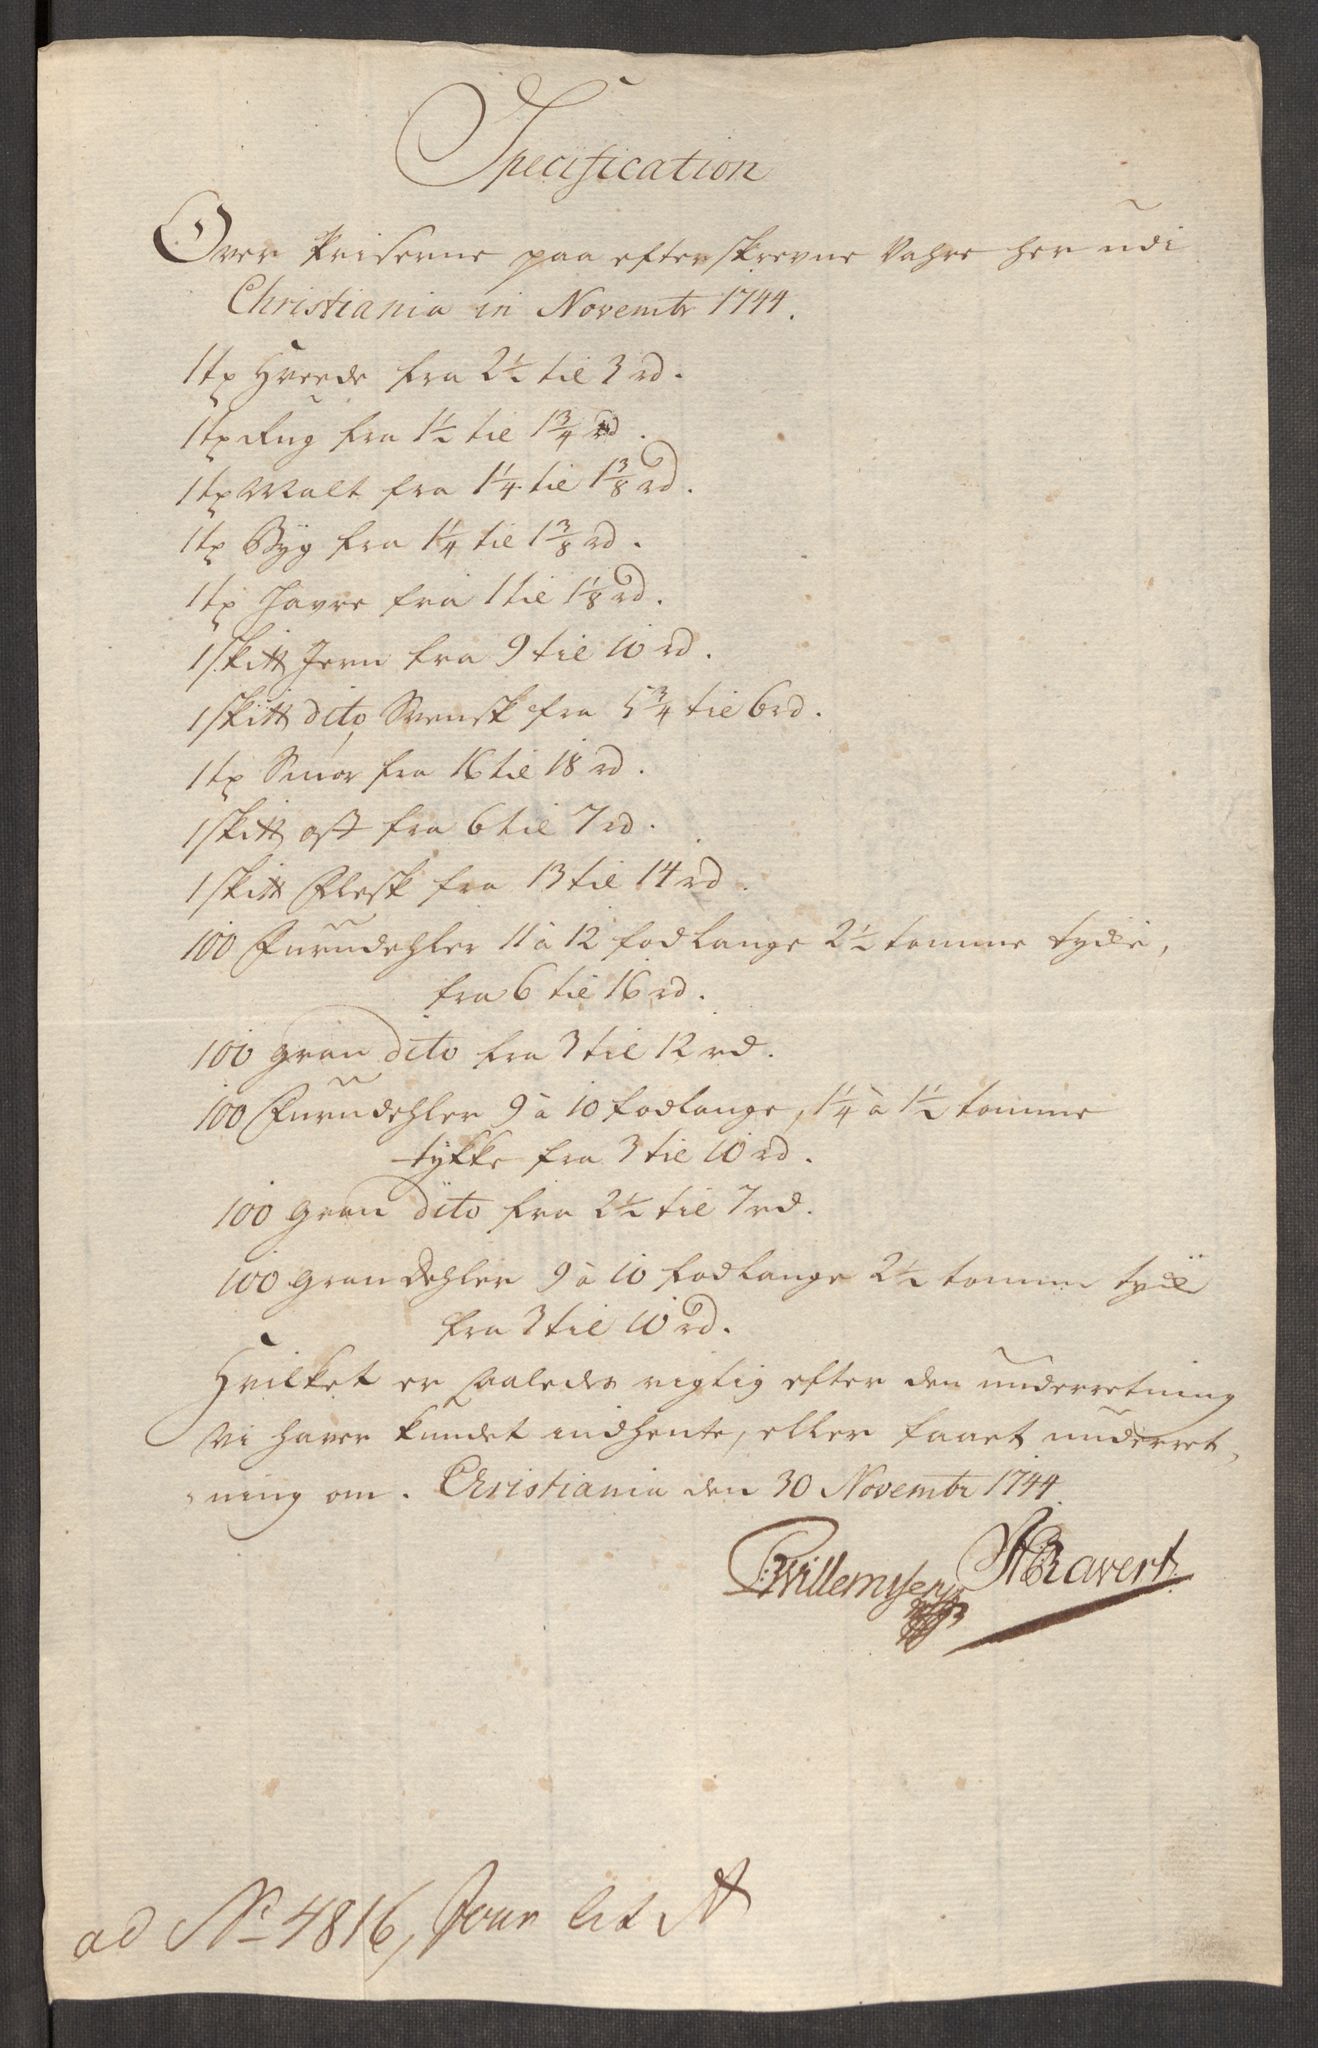 Specification
Over Priserne paa efterskrevne Vahre her udi
Christiania in Novembr 1744.
1 tp Hveede fra 2½ til 3 rd.
1 tp Rug fra 1½ til 1¾ rd.
1 tp Malt fra 1¼ til 1⅜ rd.
1 tp Byg fra 1¼ til 1⅜ rd.
1 tp Havre fra 1 til 1⅛ rd.
1 sk℔ Jern fra 9 til 10 rd.
1 sk℔ dito Svensk fra 5¾ til 6 rd.
1 tp Smør fra 16 til 18 rd.
1 sk℔ ost fra 6 til 7 rd.
1 sk℔ Flesk fra 13 til 14 rd.
100 Furudehler 11 à 12 fod lange 2½ tomme tyke,
fra 6 til 16 rd.
100 gran dito fra 3 til 12 rd.
100 Furudehler 9 à 10 fod lange, 1¼ à 1½ tomme
tykke fra 3 til 10 rd.
100 gran dito fra 2½ til 7 rd.
100 gran dehler 9 à 10 fod lange 2½ tomme
fra 3 til 10 rd.
Hvilket er saaledes rigtig efter den underretning
vi haver kundet indhente, eller faaet underret-
ning om. Christiania den 30 Novembr 1744.
Willemsen Ravert
ad No 4816, Jour lit A